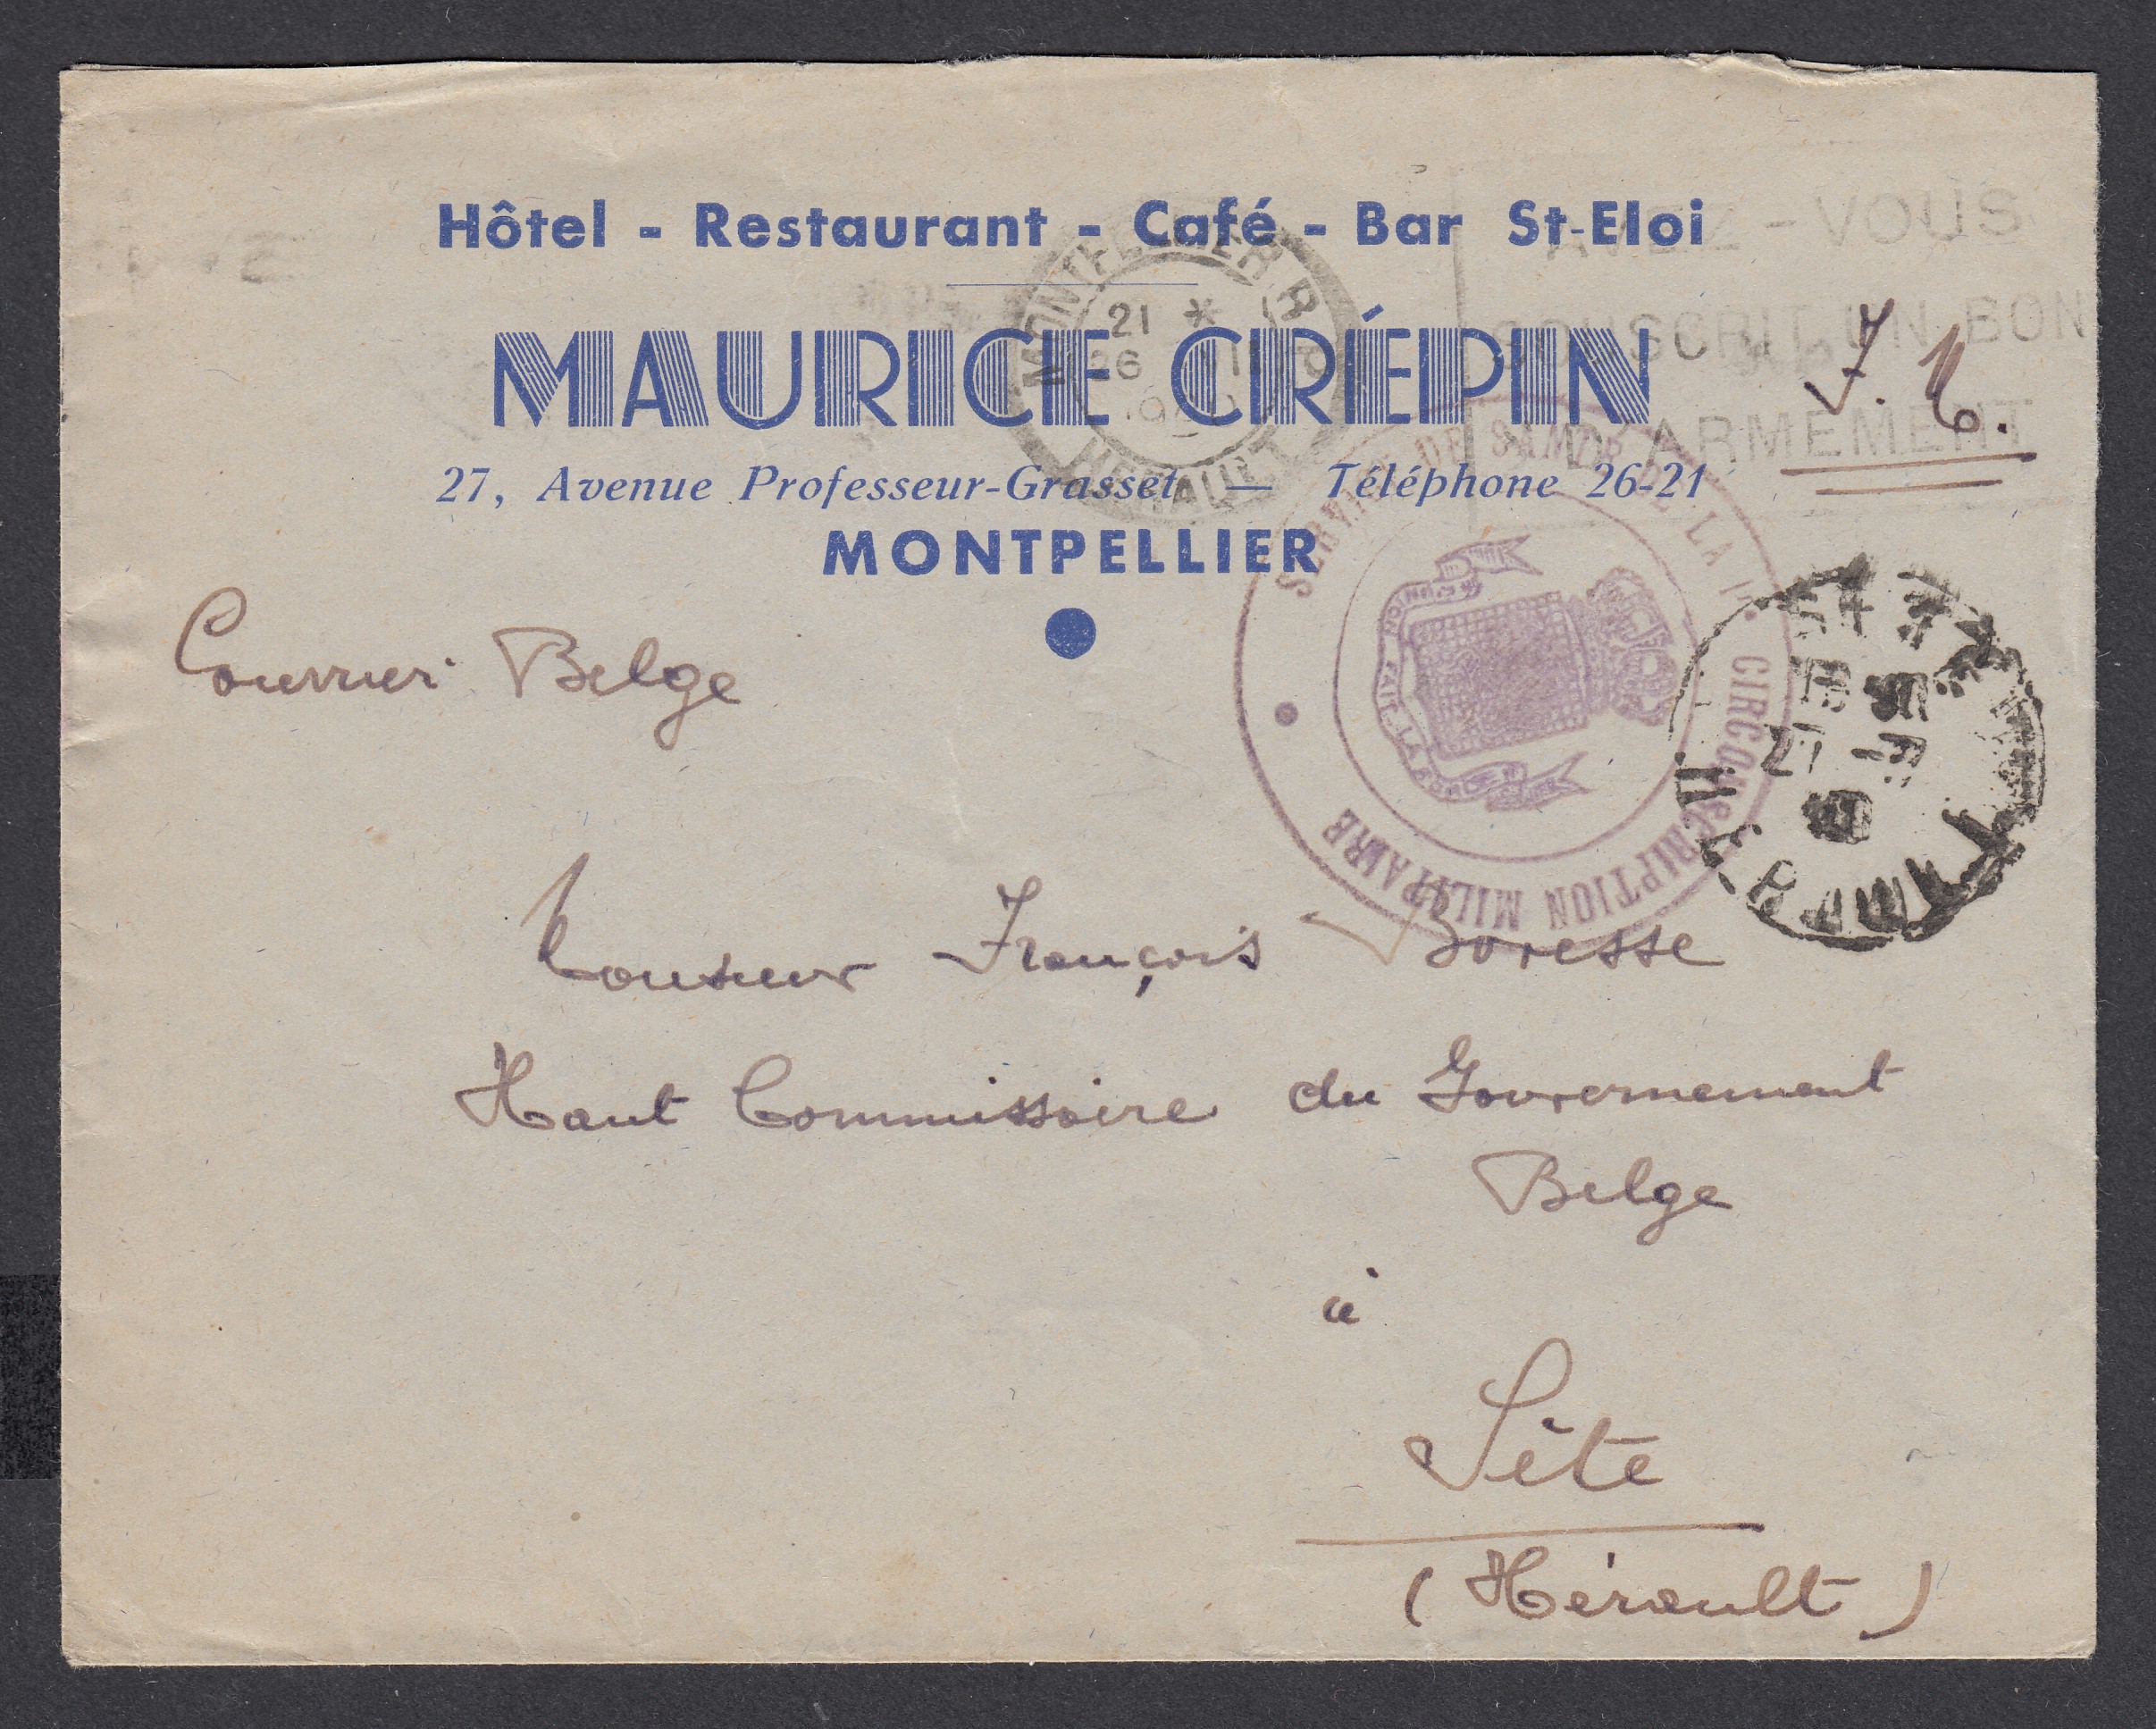 Hôtel - Restaurant - Café - Bar St-Eloi
MAURICE CRÉPIN
27, Avenue Professeur-Grasset — Téléphone 26-21
MONTPELLIER
MONTPELLIER R.P.
21 *
26
HERAULT
AVEZ-VOUS
SOUSCRIT UN BON
D'ARMEMENT
F. M.
SERVICE DE SANTE DE LA 1re CIRCONSCRIPTION MILITAIRE
L'UNION FAIT LA FORCE
Courrier Belge
Monsieur François Boresse
Haut Commissaire du Gouvernement
Belge
à
Sète
(Hérault)